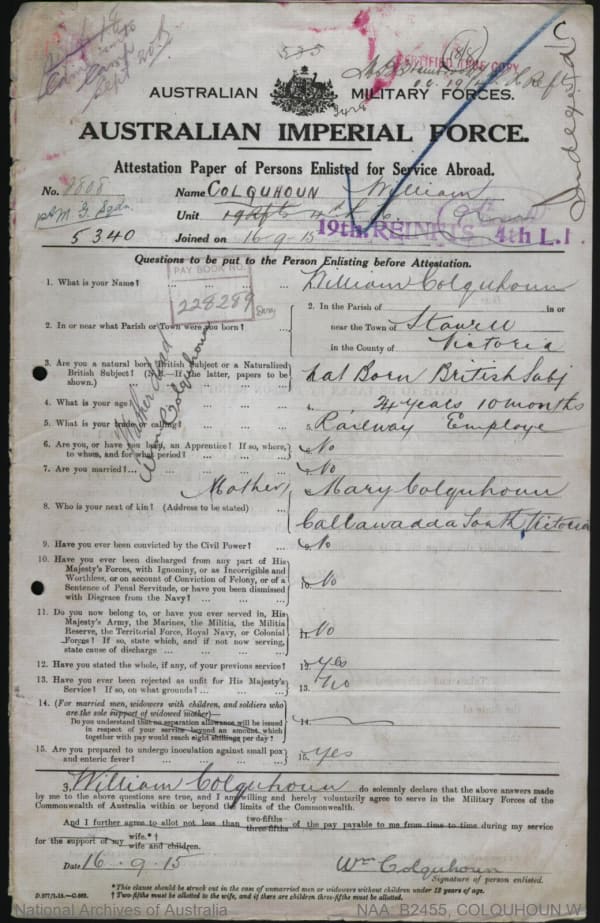 535
CERTIFIED TRUE COPY
AUSTRALIAN MILITARY FORCES.
AUSTRALIAN IMPERIAL FORCE.
Attestation Paper of Persons Enlisted for Service Abroad.
No. 2808 Name COLQUHOUN William
M. G. Sqdn Unit
19th. REINFTS 4th L.H
5340 Joined on 16-9-15
Questions to be put to the Person Enlisting before Attestation.
PAY BOOK NO.
228289
1. What is your Name? ... ... William Colquhoun
2. In or near what Parish or Town were you born? ...
2. In the Parish of in or
near the Town of Stawell
in the County of Victoria
3. Are you a natural born British Subject or a Naturalized British Subject? (N.B.—If the latter, papers to be shown.) Nat Born British Subj
4. What is your age? 34 years 10 months
5. What is your trade or calling? 5. Railway Employe
6. Are you, or have you been, an Apprentice? If so, where, to whom, and for what period? 6. No
7. Are you married? ... No
Father dead
Wm Colquhoun
8. Who is your next of kin? (Address to be stated) ... Mother Mary Colquhoun
Callawadda South Victoria
9. Have you ever been convicted by the Civil Power? ... No
10. Have you ever been discharged from any part of His
Majesty's Forces, with Ignominy, or as Incorrigible and
Worthless, or on account of Conviction of Felony, or of a
Sentence of Penal Servitude, or have you been dismissed
with Disgrace from the Navy? ... 10. No
11. Do you now belong to, or have you ever served in, His
Majesty's Army, the Marines, the Militia, the Militia
Reserve, the Territorial Force, Royal Navy, or Colonial
Forces? If so, state which, and if not now serving,
state cause of discharge ... 11. No
12. Have you stated the whole, if any, of your previous service? 12. Yes
13. Have you ever been rejected as unfit for His Majesty's
Service? If so, on what grounds? ... 13. No
14. (For married men, widowers with children, and soldiers who
are the sole support of widowed mother)—
Do you understand that no separation allowance will be issued
in respect of your service beyond an amount which
together with pay would reach eight shillings per day? 14.
15. Are you prepared to undergo inoculation against small pox
and enteric fever? 15. Yes
I, William Colquhoun do solemnly declare that the above answers made
by me to the above questions are true, and I am willing and hereby voluntarily agree to serve in the Military Forces of the
Commonwealth of Australia within or beyond the limits of the Commonwealth.
And I further agree to allot not less than two-fifths three-fifths of the pay payable to me from time to time during my service
for the support of my wife.*† wife and children.
Date 16-9-15 Wm Colquhoun
Signature of person enlisted.
*This clause should be struck out in the case of unmarried men or widowers without children under 18 years of age.
† Two-fifths must be allotted to the wife, and if there are children three-fifths must be allotted.
National Archives of Australia NAA: B2455, COLQUHOUN W